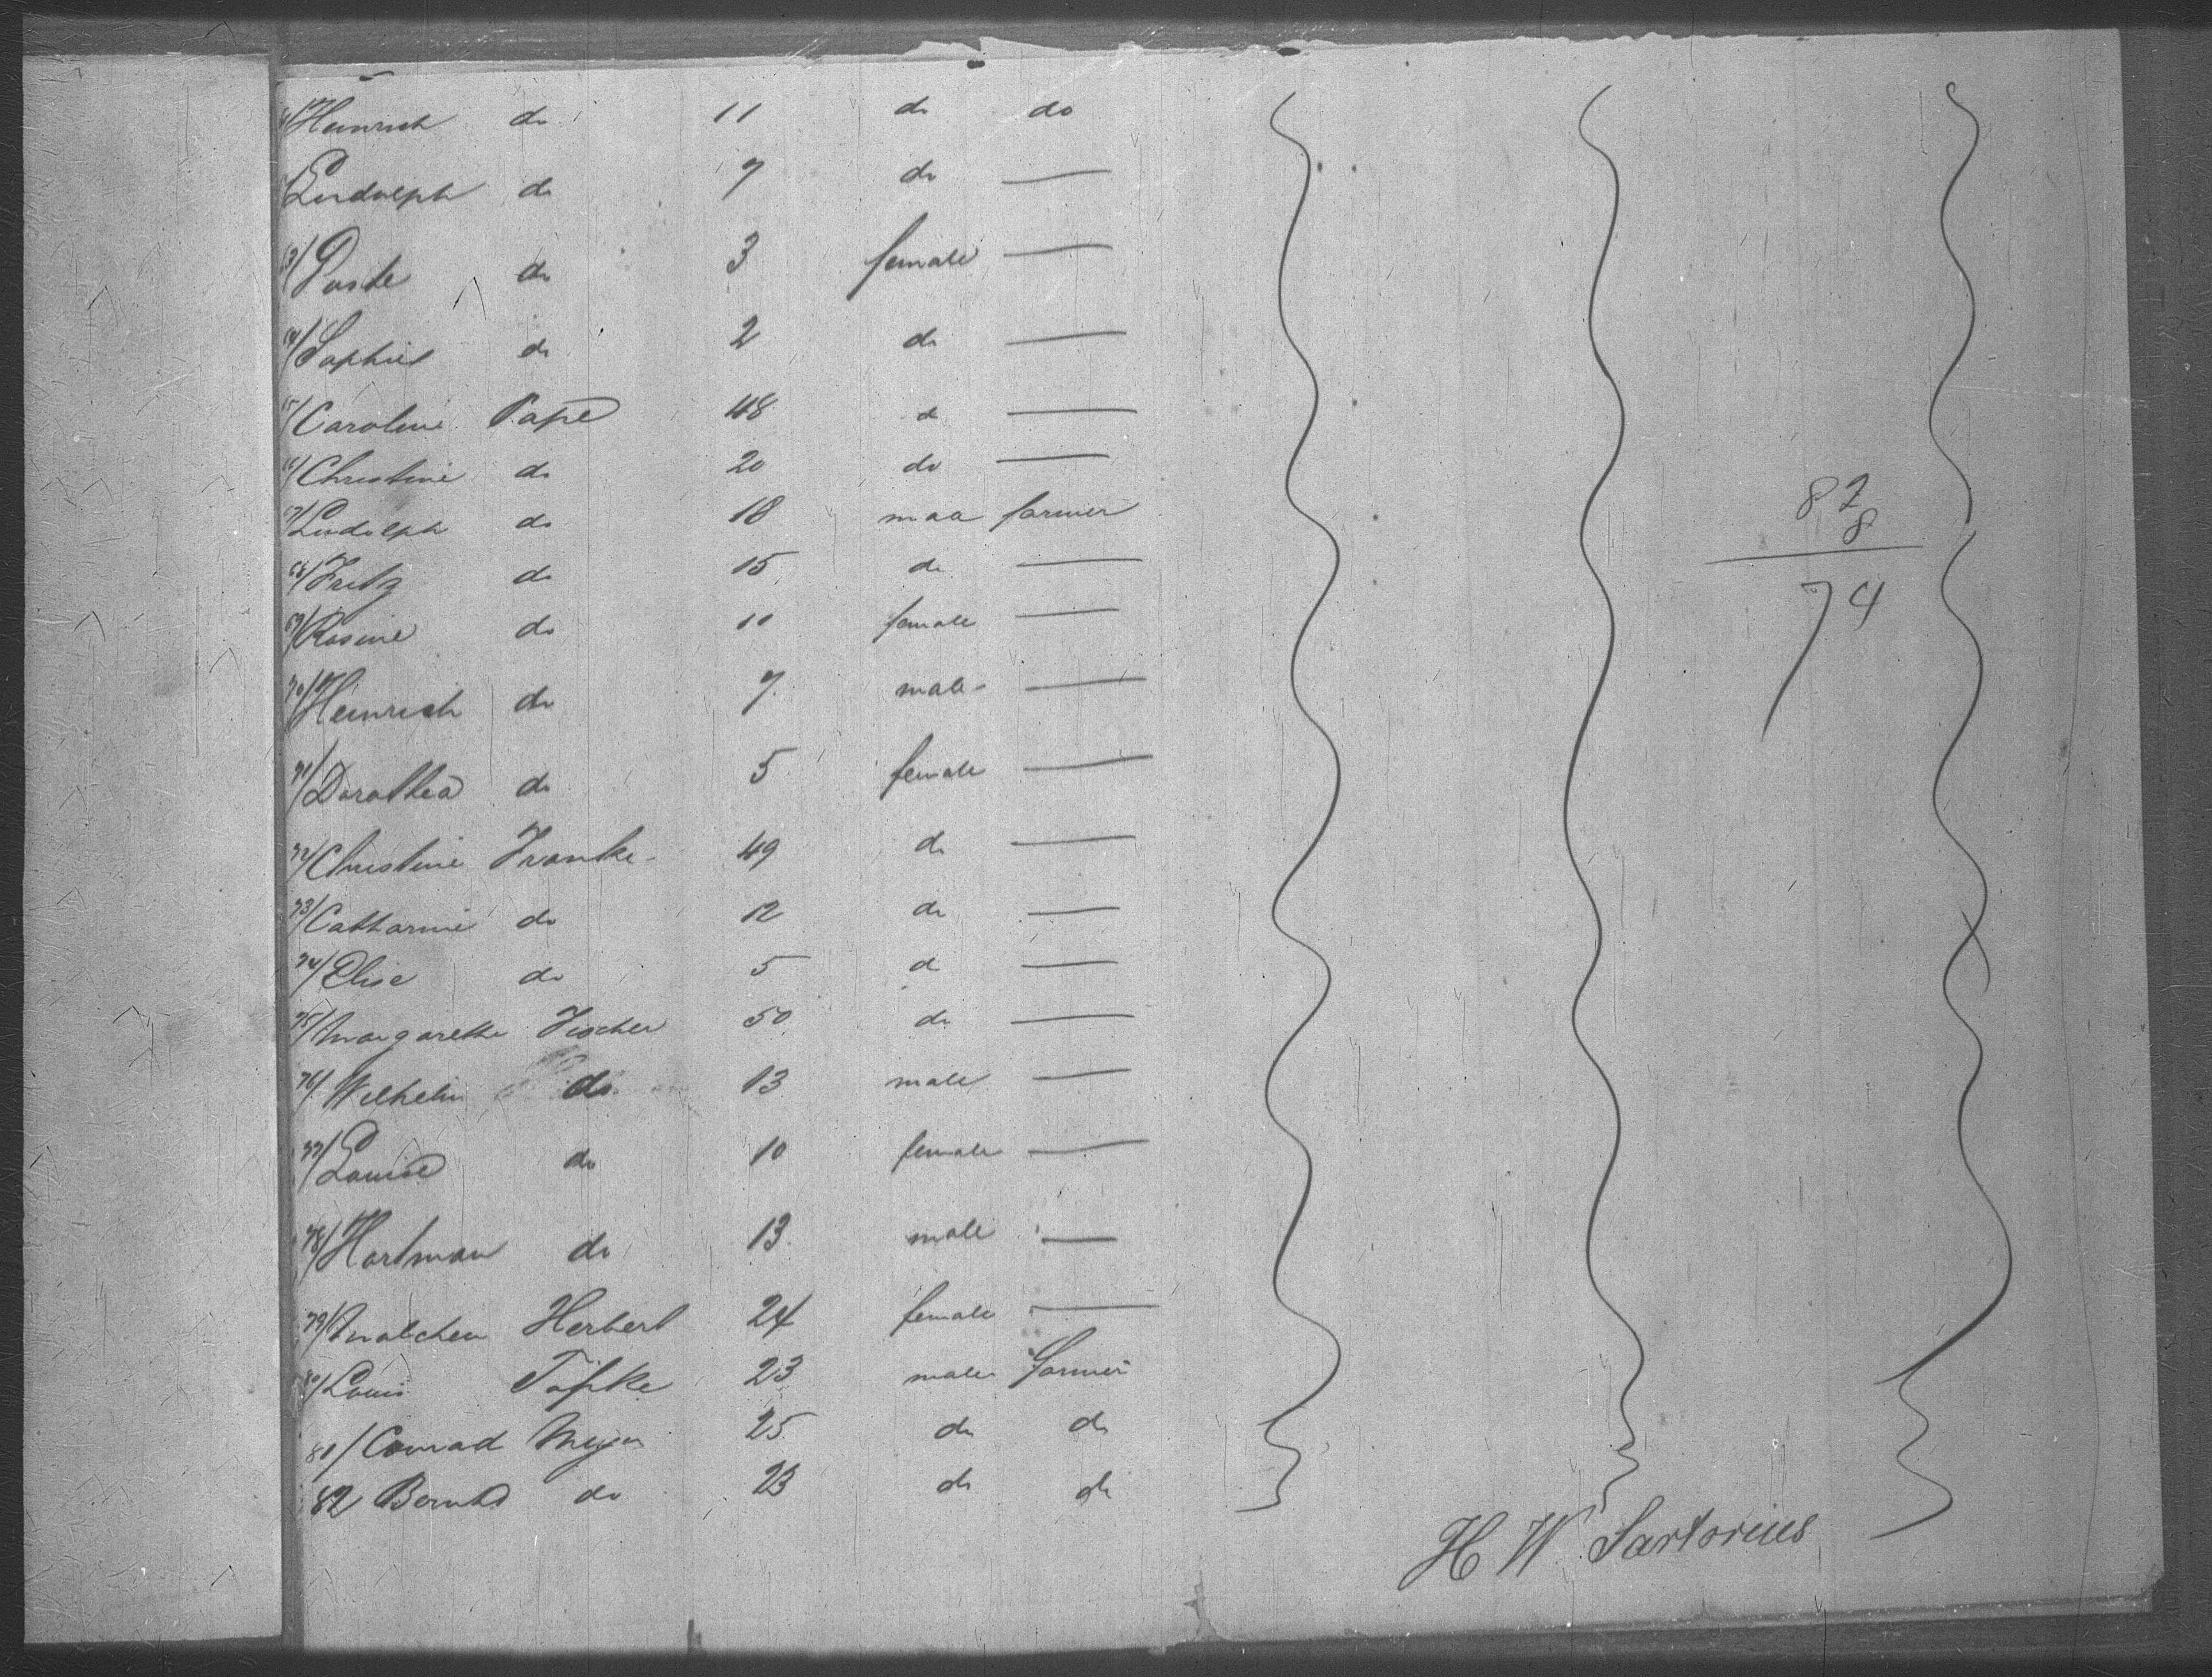 Heinrich do 11 do do
Ludolph do 7 do —
63/ do 3 female —
64/ Sophie do 2 do —
65/ Caroline Pape 48 do —
66/ Christine do 20 do —
67/ Ludolph do 18 maa farmer
68/ Fritz do 15 do —
69/ Rosine do 10 female —
70/ Heinrich do 7 male —
71/ Dorothea do 5 female —
72/ Christine Franke 49 do —
73/ Catharine do 12 do —
74/ Elise do 5 do —
75/ Margarethe Fischer 50 do —
76/ Wilhelm do 13 male —
77/ Louise do 10 female —
78/ Hartman do 13 male —
79/ Malchen Herbert 24 female —
80/ Louis Töpke 23 male farmer
81/ Conrad Meyer 25 do do
82 Bernhd do 23 do do
82
8
74
H W Sartorius